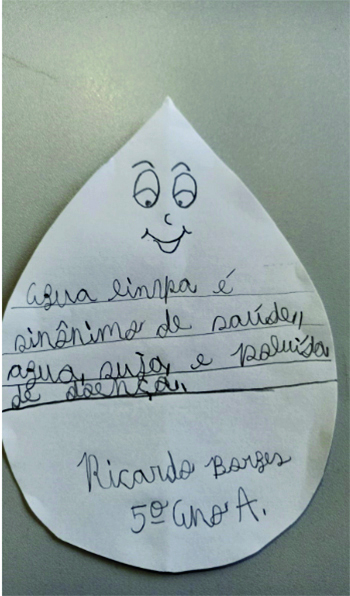 agua linpa é
sinônimo de saúde,,
agua, suja, e poluida
de doença,,
Ricardo Borges
5º Ano A.